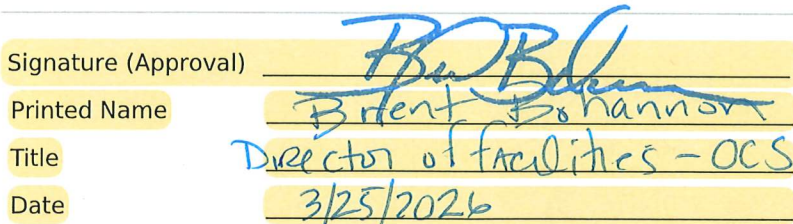 Signature (Approval)
Printed Name Brent Bohannon
Title Director of facilities - OCS
Date 3/25/2026